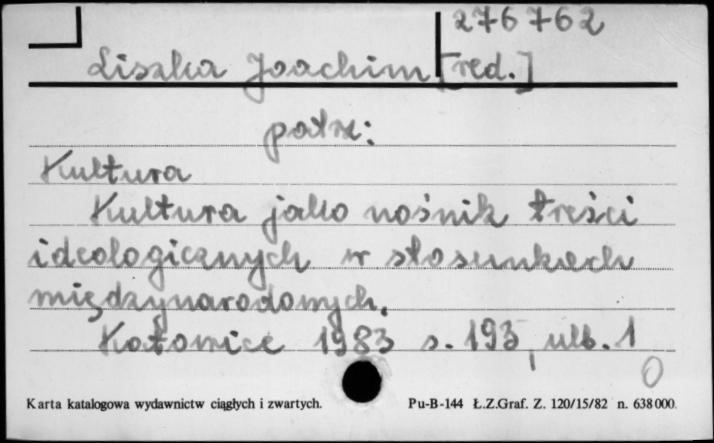 276762
Liszka Joachim [red.]
patrz:
Kultura
Kultura jako nośnik treści
ideologicznych w stosunkach
międzynarodowych.
Katowice 1983 s. 193, nlb. 1
0
Karta katalogowa wydawnictw ciągłych i zwartych. Pu-B-144 Ł.Z.Graf. Z. 120/15/82 n. 638000.